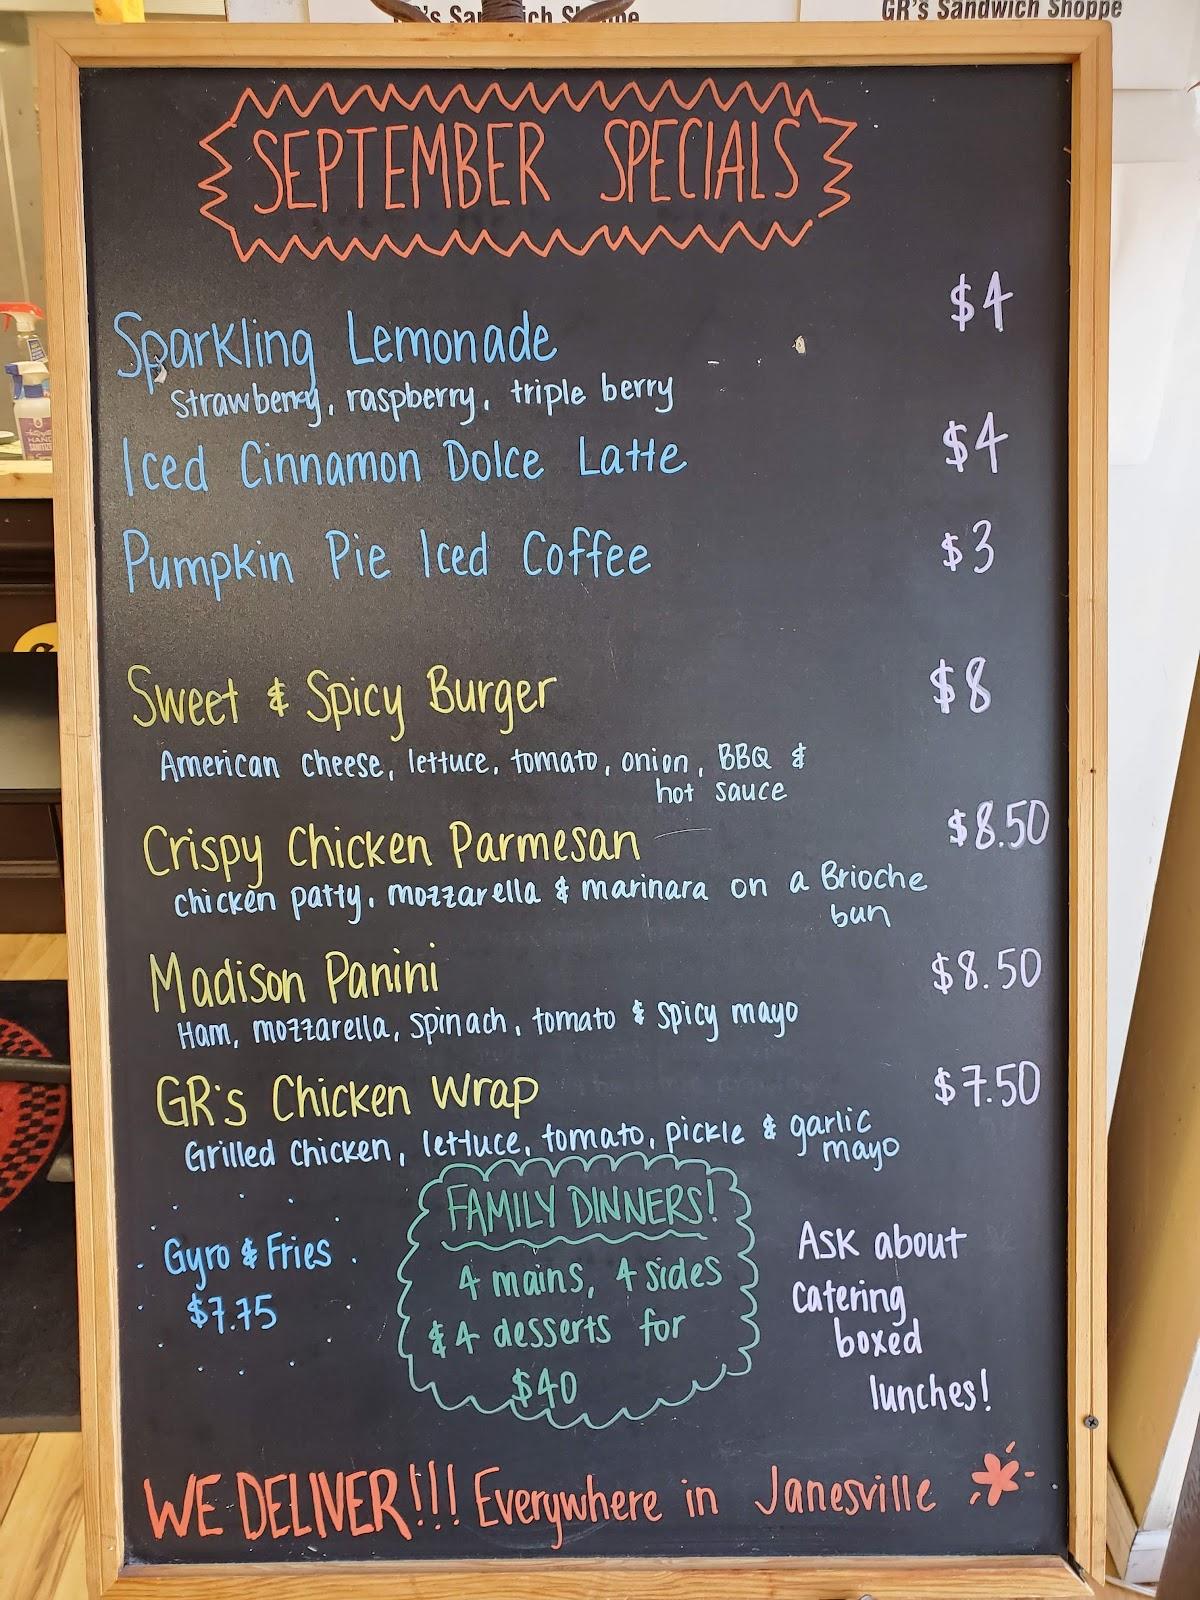 GR's Sandwich Shoppe
GR's Sandwich Shoppe
SEPTEMBER SPECIALS
Sparkling Lemonade $4
Strawberry, raspberry, triple berry
Iced Cinnamon Dolce Latte $4
Pumpkin Pie Iced Coffee $3
Sweet & Spicy Burger $8
American cheese, lettuce, tomato, onion, BBQ &
hot sauce
Crispy Chicken Parmesan $8.50
chicken patty, mozzarella & marinara on a Brioche
bun
Madison Panini $8.50
Ham, mozzarella, spinach, tomato & spicy mayo
GR's Chicken Wrap $7.50
Grilled Chicken, lettuce, tomato, pickle & garlic
mayo
Gyro & Fries
$7.75
FAMILY DINNERS!
4 mains, 4 sides
& 4 desserts for
$40
Ask about
catering
boxed
lunches!
WE DELIVER!!! Everywhere in Janesville